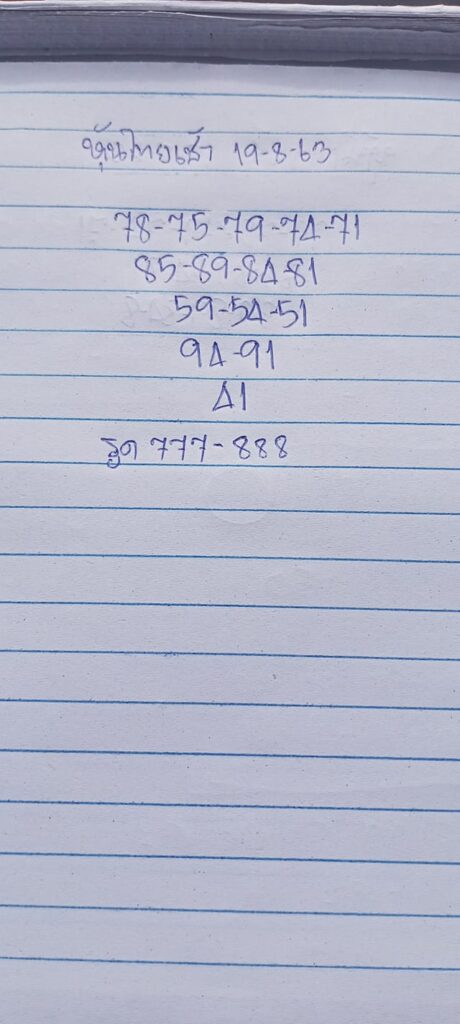 หุ้นไทยเช้า 19-8-63
78-75-79-74-71
85-89-84-81
59-54-51
94-91
41
รูด 777-888